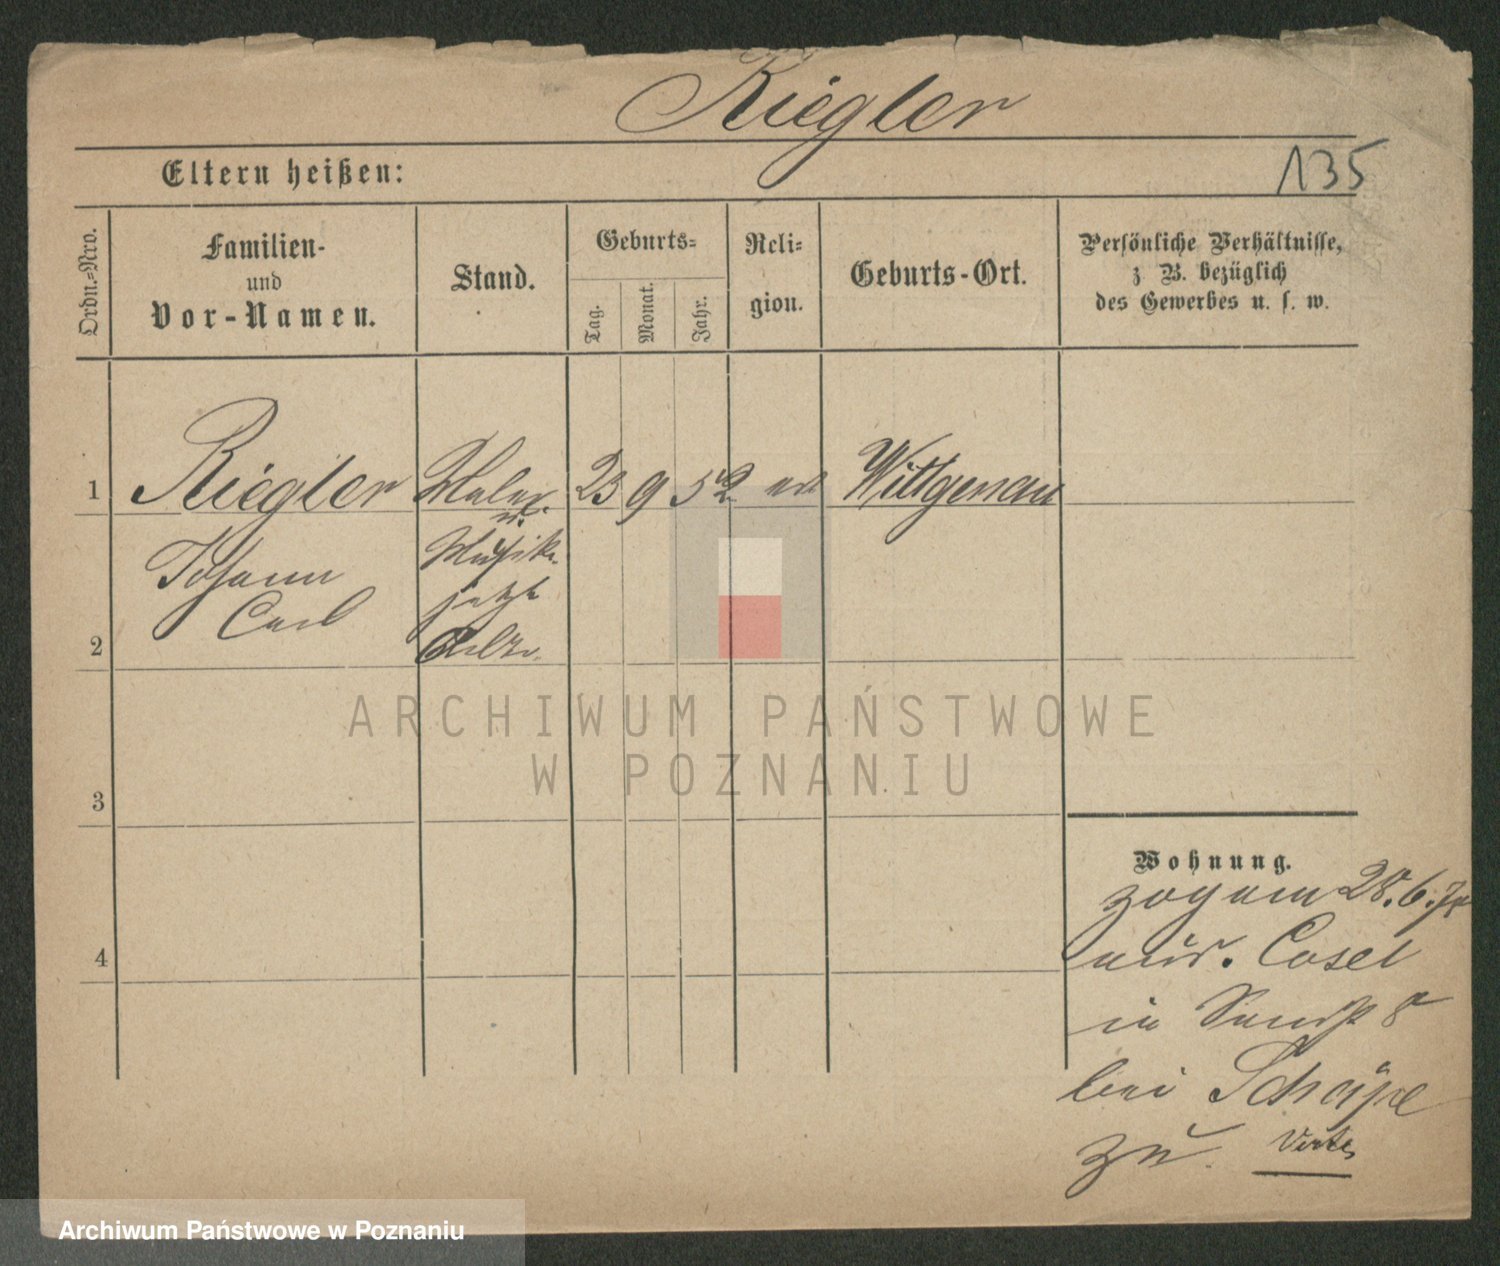 Riegler
Eltern heißen:
135
Ordn.=Nro.
Familien-
und
Vor-Namen.
Stand.
Geburts=
Tag.
Monat.
Jahr.
Reli=
gion.
Geburts-Ort.
Persönliche Verhältnisse,
z. B. bezüglich
des Gewerbes u. s. w.
1 Riegler Maler 23 9 52 Wittgenau
u.
Musik.
Johann
jetzt
Carl
2
ARCHIWUM PAŃSTWOWE
W POZNANIU
3
Wohnung.
zog am 28. 6.
4
aus. Cosel
in 8
bei
zu.
Archiwum Państwowe w Poznaniu